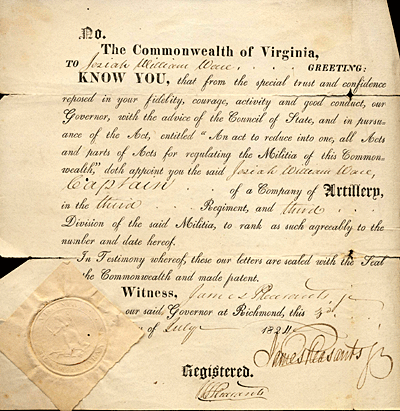 No.
The Commonwealth of Virginia,
TO Josiah William Ware . . . . GREETING:
KNOW YOU, that from the special trust and confidence
reposed in your fidelity, courage, activity and good conduct, our
Governor, with the advice of the Council of State, and in pursu-
ance of the Act, entitled "An act to reduce into one, all Acts
and parts of Acts for regulating the Militia of this Common-
wealth," doth appoint you the said Josiah William Ware,
Captain . . . of a Company of Artillery,
in the third . . . Regiment, and third . . .
Division of the said Militia, to rank as such agreeably to the
number and date hereof.
In Testimony whereof, these our letters are sealed with the Seal
the Commonwealth and made patent.
Witness, James Pleasants, jr
our said Governor at Richmond, this 3d
of July 1824
James Pleasants jr
Registered.